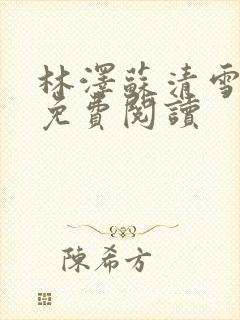 林澤蘇清雪
免費閱讀
陳希方